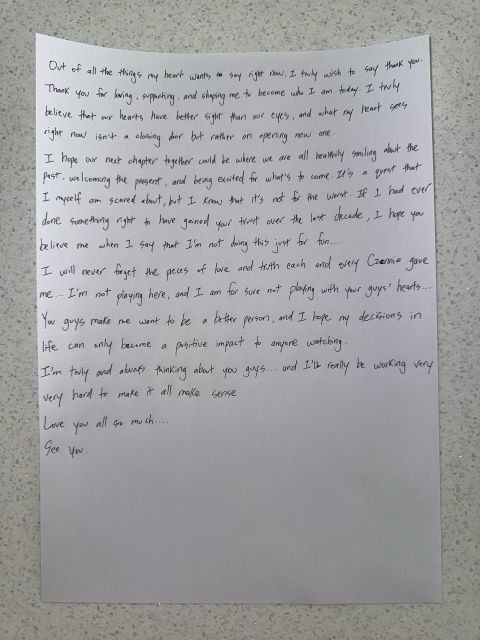 Out of all the things my heart wants to say right now, I truly wish to say thank you.
Thank you for loving, supporting, and shaping me to become who I am today. I truly
believe that our hearts have better sight than our eyes, and what my heart sees
right now isn't a closing door but rather an opening new one.
I hope our next chapter together could be where we are all healthily smiling about the
past. welcoming the present, and being excited for what's to come. It's a quest that
I myself am scared about, but I know that it's not for the worst. If I had ever
done something right to have gained your trust over the last decade, I hope you
believe me when I say that I'm not doing this just for fun....
I will never forget the peices of love and truth each and every Czennie gave
me... I'm not playing here, and I am for sure not playing with your guys' hearts....
You guys make me want to be a better person, and I hope my decisions in
life can only become a positive impact to anyone watching.
I'm truly and always thinking about you guys... and I'll really be working very
very hard to make it all make sense.
Love you all so much....
See you.